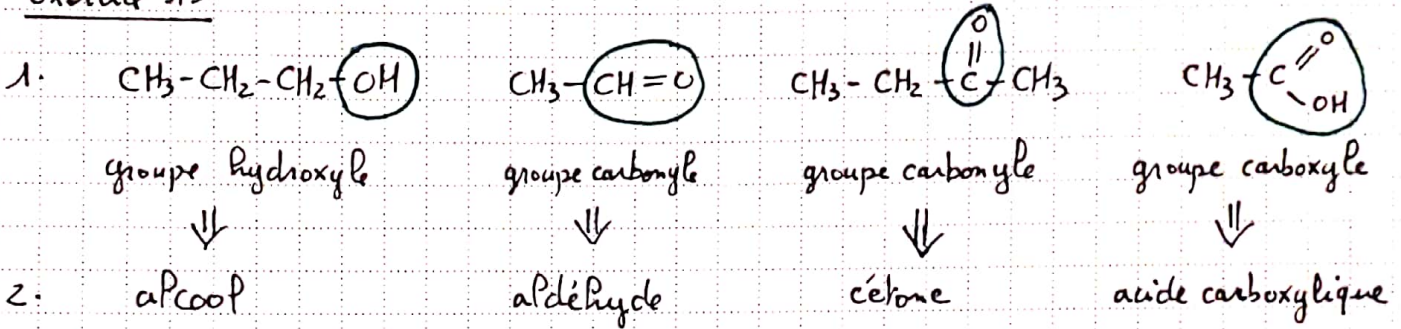 1. CH₃-CH₂-CH₂-OH CH₃-CH=O CH₃-CH₂-C(=O)-CH₃ CH₃-C(=O)-OH
groupe hydroxyle groupe carbonyle groupe carbonyle groupe carboxyle
⇓ ⇓ ⇓ ⇓
2. alcool aldéhyde cétone acide carboxylique